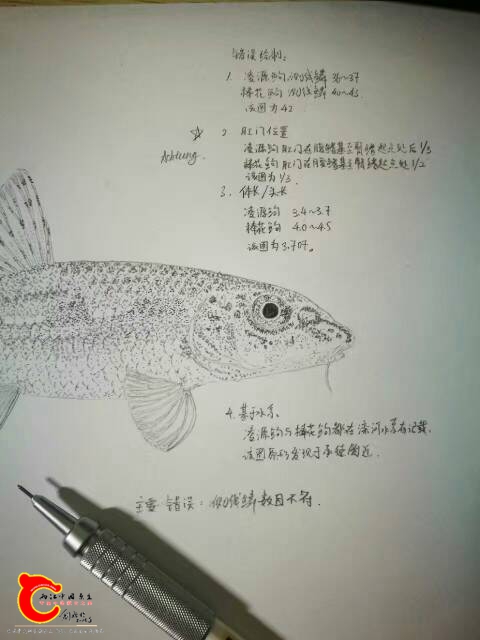 错误绘制:
1. 凌源鮈 侧线鳞 36~37
棒花鮈 侧线鳞 40~45
该图为42
☆ 2 肛门位置
Achtung.
凌源鮈肛门在腹鳍基至臀鳍起点处后1/3
棒花鮈肛门在腹鳍基至臀鳍起点处1/2
该图为1/3.
3. 体长/头长
凌源鮈 3.4~3.7
棒花鮈 4.0~4.5
该图为3.707。
4. 基于水系.
凌源鮈与棒花鮈都在滦河水系有记载.
该图原形发现于承德附近.
主要错误:侧线鳞数目不符.
两江中国原生